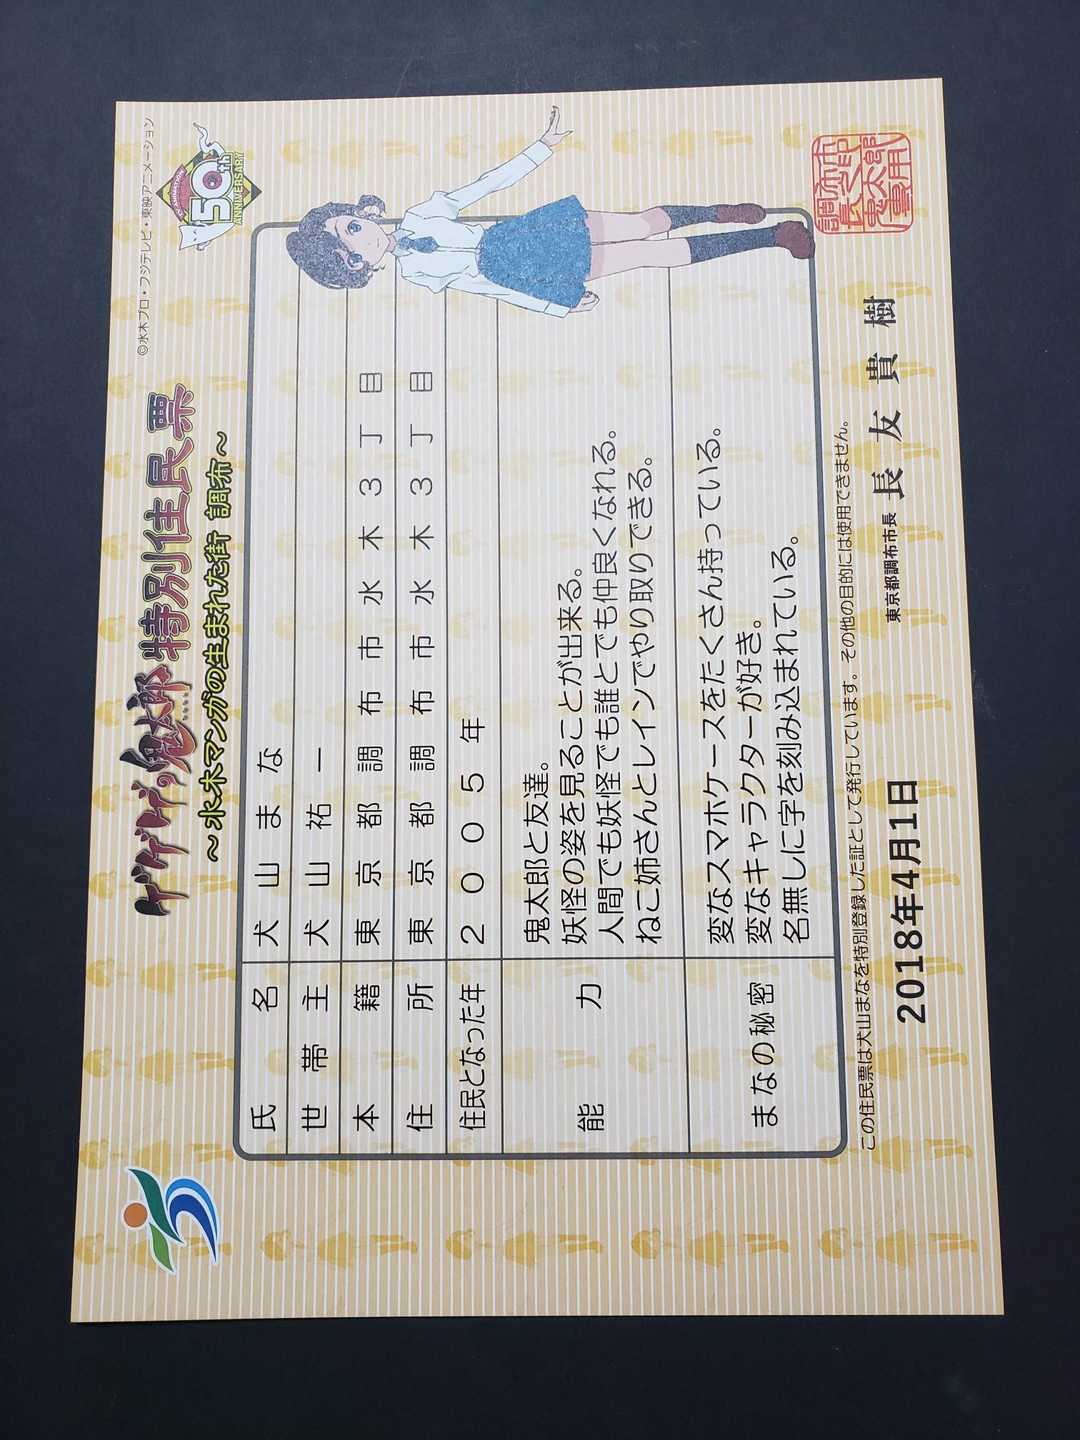 ゲゲゲの鬼太郎 特別住民票
～水木マンガの生まれた街 調布～
50th
ANNIVERSARY
©水木プロ・フジテレビ・東映アニメーション
氏名 犬山まな
世帯主 犬山祐一
本籍 東京都調布市水木3丁目
住所 東京都調布市水木3丁目
住民となった年 2005年
能力
鬼太郎と友達。
妖怪の姿を見ることが出来る。
人間でも妖怪でも誰とでも仲良くなれる。
ねこ姉さんとレインでやり取りできる。
まなの秘密
変なスマホケースをたくさん持っている。
変なキャラクターが好き。
名無しに字を刻み込まれている。
この住民票は犬山まなを特別登録した証として発行しています。その他の目的には使用できません。
2018年4月1日
東京都調布市長 長友貴樹